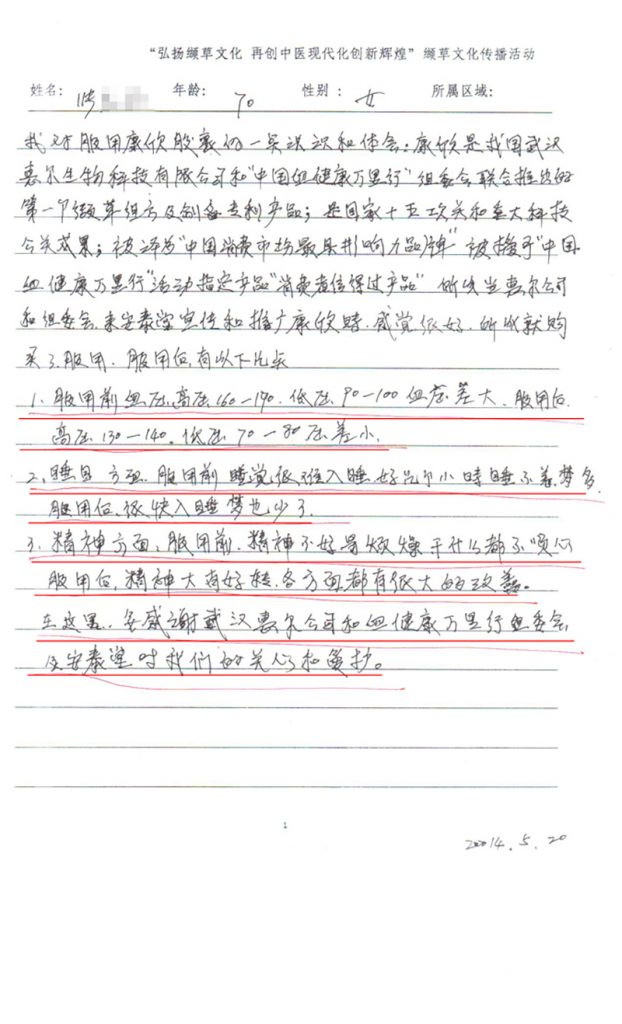 “弘扬缬草文化 再创中医现代化创新辉煌” 缬草文化传播活动
姓名: 年龄: 70 性别: 女 所属区域:
我对服用康欣胶囊的一些认识和体会：康欣是我国武汉
惠尔生物科技有限公司和“中国血健康万里行”组委会联合推出的
第一个缬草组方及制备专利产品；是国家十五攻关和重大科技
公关成果；被评为“中国消费市场最具影响力品牌”被授予“中国
血健康万里行“活动指定产品”消费者信得过产品” 所以当惠尔公司
和组委会来安泰堂宣传和推广康欣时.感觉很好.所以就购
买了服用. 服用后有以下几点
1. 服用前血压高压160—190.低压90—100血压差大.服用后
高压130—140.低压70—80压差小.
2. 睡眠方面.服用前睡觉很难入睡.好几个小時睡不着.梦多
服用后.很快入睡梦也少了.
3. 精神方面：服用前.精神不好易烦燥干什么都不顺心
服用后.精神大有好转.各方面都有很大的改善。
在这里.多感谢武汉惠尔公司和血健康万里行组委会
及安泰堂对我们的关心和爱护。
1
2014.5.20